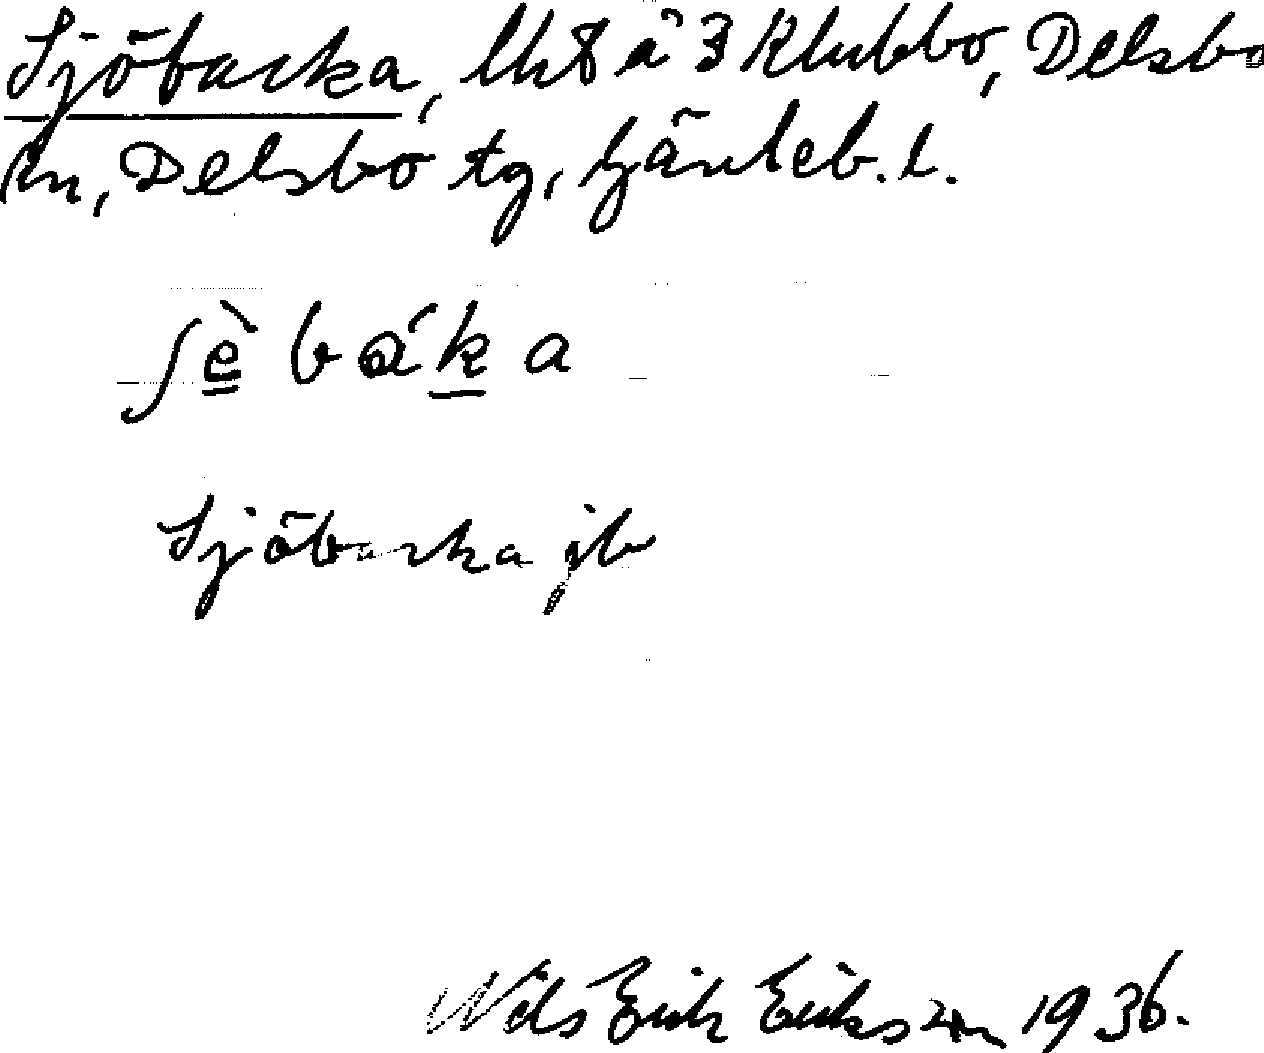 Sjöbacka, lht å 3 Klubbo, Delsbo
sn, Delsbo tg, Gävleb. l.
ʃè̳ b ɑ́ k̲ a
Sjöbacka jb
Nils Erik Eriksson 1936.